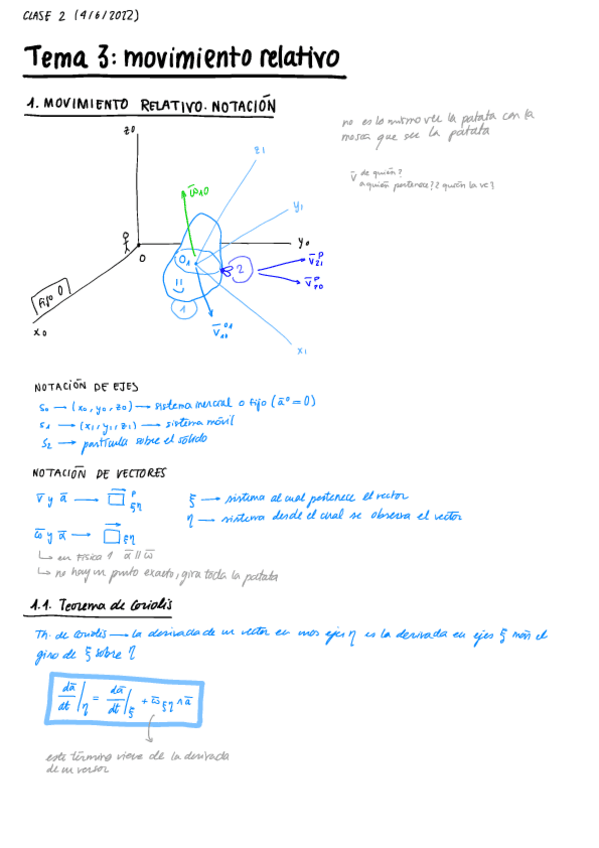 CLASE 2 (4/6/2022)
Tema 3: movimiento relativo
1. MOVIMIENTO RELATIVO. NOTACIÓN
no es lo mismo ver la patata con la
mosca que ser la patata
v̄ de quién?
a quién pertenece? ? quién la ve?
z0
z1
ω̄10
y1
y0
0
O1
2
v̄ P 21
v̄ P 20
Fijo 0
1
x0
v̄ 01 10
x1
NOTACIÓN DE EJES
S0 → (x0, y0, z0) → sistema inercial o fijo (ā° = 0)
S1 → (x1, y1, z1) → sistema móvil
S2 → partícula sobre el sólido
NOTACIÓN DE VECTORES
v̄ y ā → □ P ξη
ξ → sistema al cual pertenece el vector
η → sistema desde el cual se observa el vector
ω̄ y ᾱ → □ ξη
↳ en Física 1 ᾱ ∥ ω̄
↳ no hay un punto exacto, gira toda la patata
1.1. Teorema de Coriolis
Th. de Coriolis → la derivada de un vector en unos ejes η es la derivada en ejes ξ más el
giro de ξ sobre η
dā/dt |η = dā/dt |ξ + ω̄ξη ∧ ā
este término viene de la derivada
de un versor